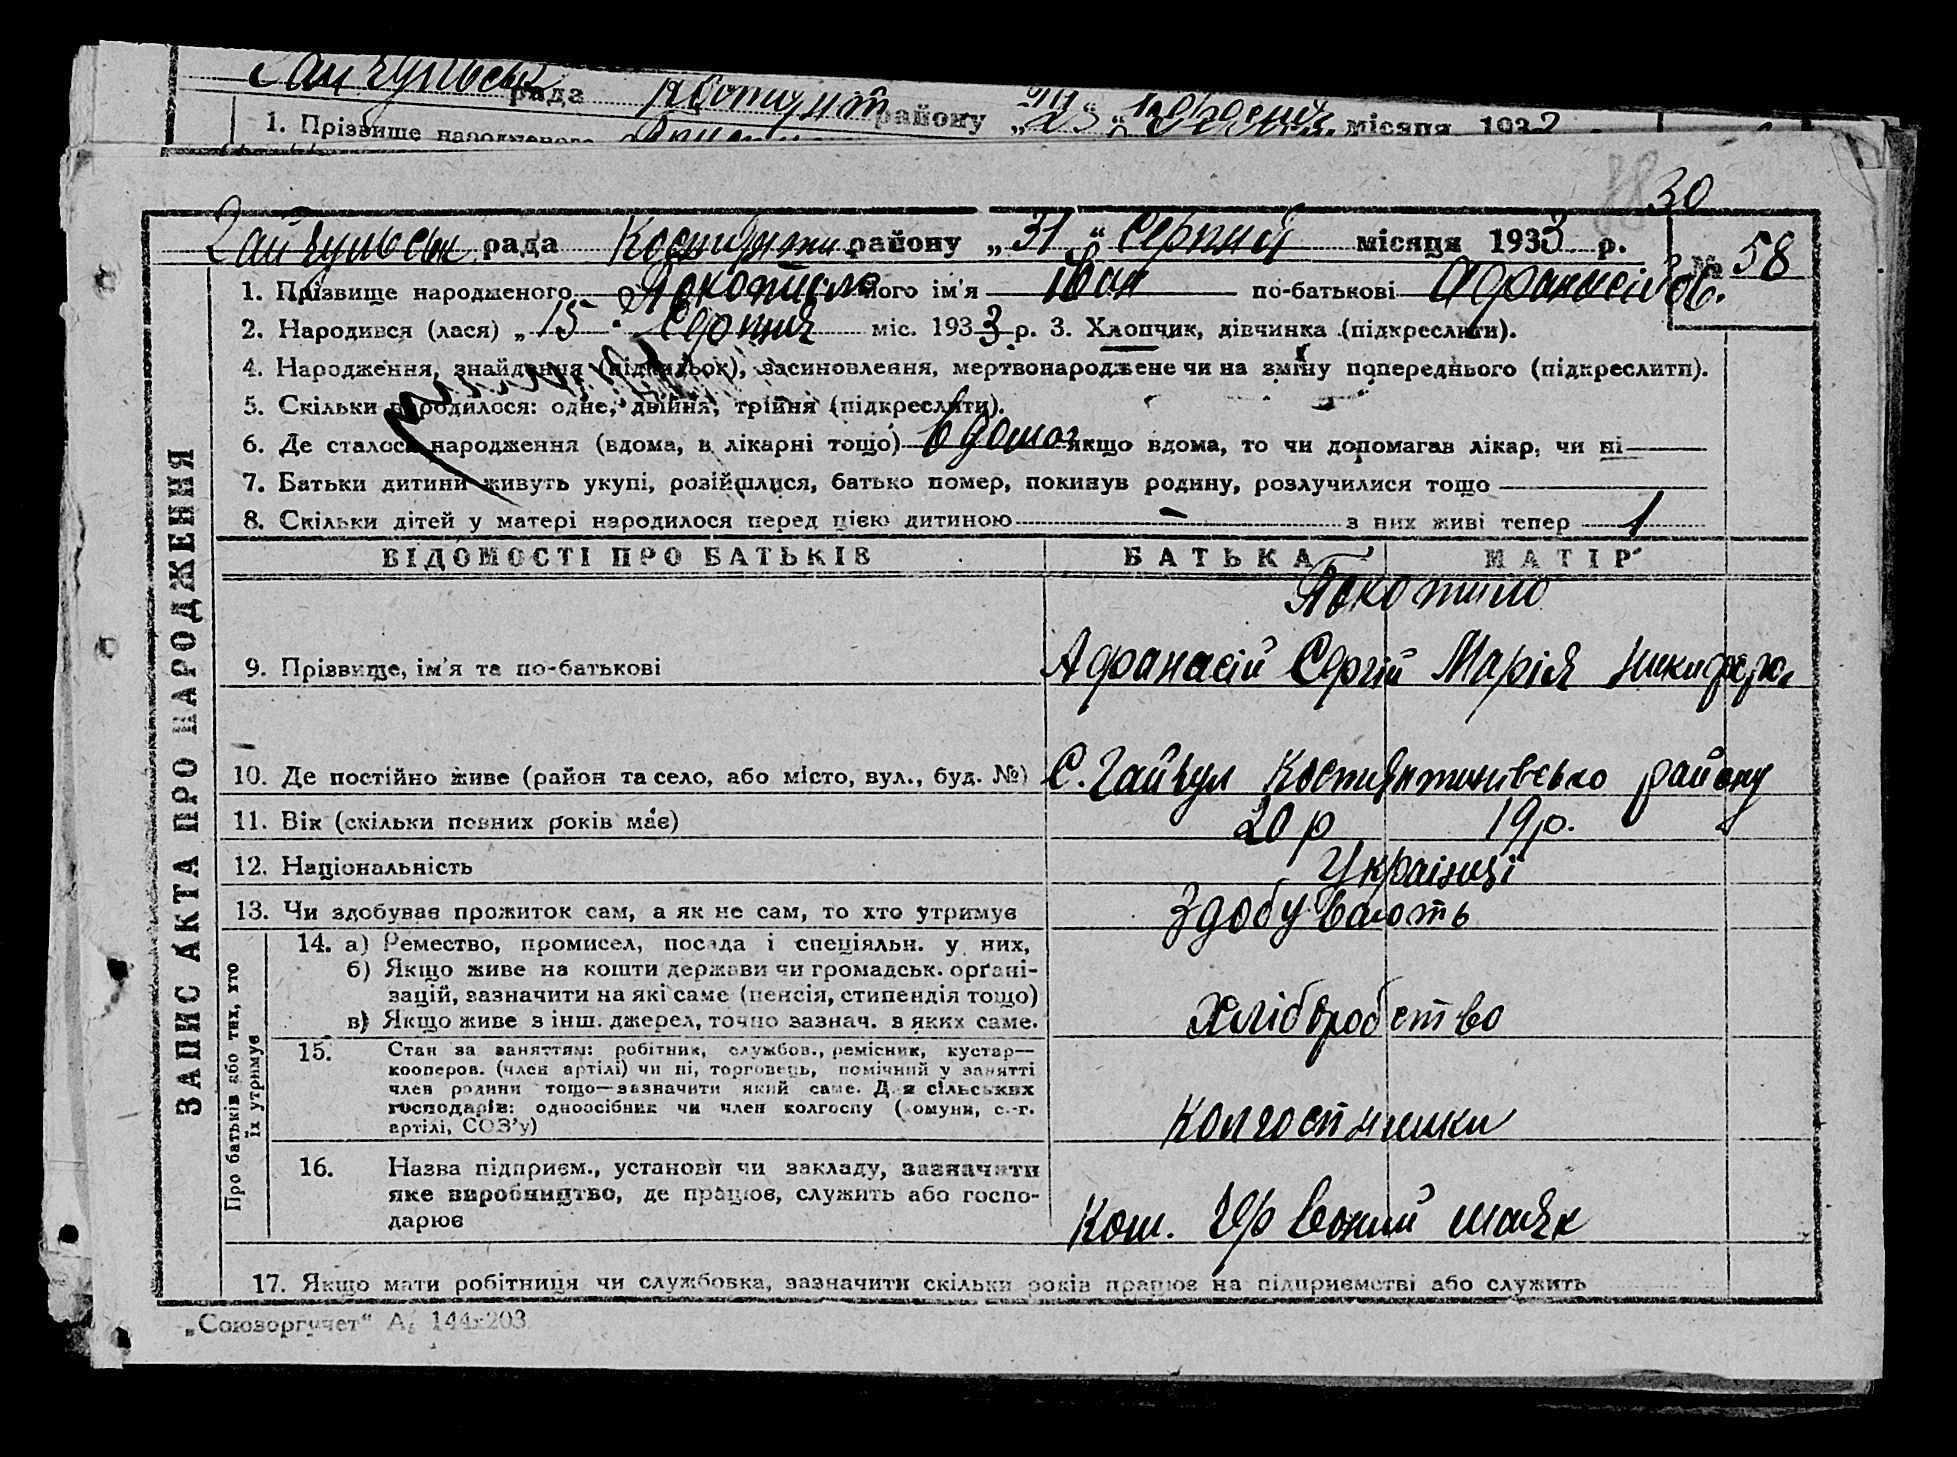 рада району „23“ місяця 193
1. Прізвище народженого
30
Гайчульськ рада району „31“ Серпня місяця 1933 р.
№ 58
1. Прізвище народженого його ім'я Іван по-батькові Афанасійов.
2. Народився (лася) „15 Серпня міс. 1933 р. 3. Хлопчик, дівчинка (підкреслити).
4. Народження, знайдення (підкидьок), засиновлення, мертвонароджене чи на зміну попереднього (підкреслити).
5. Скільки народилося: одне, двійня, трійня (підкреслити).
6. Де сталося народження (вдома, в лікарні тощо) вдома якщо вдома, то чи допомагав лікар, чи ні
7. Батьки дитини живуть укупі, розійшлися, батько помер, покинув родину, розлучилися тощо
8. Скільки дітей у матері народилося перед цією дитиною — з них живі тепер 1
ЗАПИС АКТА ПРО НАРОДЖЕННЯ
ВІДОМОСТІ ПРО БАТЬКІВ БАТЬКА МАТІР
9. Прізвище, ім'я та по-батькові Афанасій Сергій Марія
10. Де постійно живе (район та село, або місто, вул., буд. №) С. Гайчул району
11. Вік (скільки повних років має) 20 р 19 р.
12. Національність Українці
13. Чи здобував прожиток сам, а як не сам, то хто утримує Здобувають
Про батьків або тих, хто їх утримує
14. а) Ремество, промисел, посада і спеціяльн. у них,
б) Якщо живе на кошти держави чи громадськ. органі-
зацій, зазначити на які саме (пенсія, стипендія тощо)
в) Якщо живе з інш. джерел, точно зазнач. з яких саме. Хліборобство
15. Стан за заняттям: робітник, службов., ремісник, кустар—
кооперов. (член артілі) чи ні, торговець, помічний у занятті
член родини тощо—зазначити який саме. Для сільських
господарів: одноосібник чи член колгоспу (комуни, с.-г.
артілі, СОЗ'у) Колгоспники
16. Назва підприєм., установи чи закладу, зазначити
яке виробництво, де працює, служить або госпо-
дарює Ком. Червоний маяк
17. Якщо мати робітниця чи службовка, зазначити скільки років працює на підприємстві або служить
„Союзоргучет“ А₅ 144x203